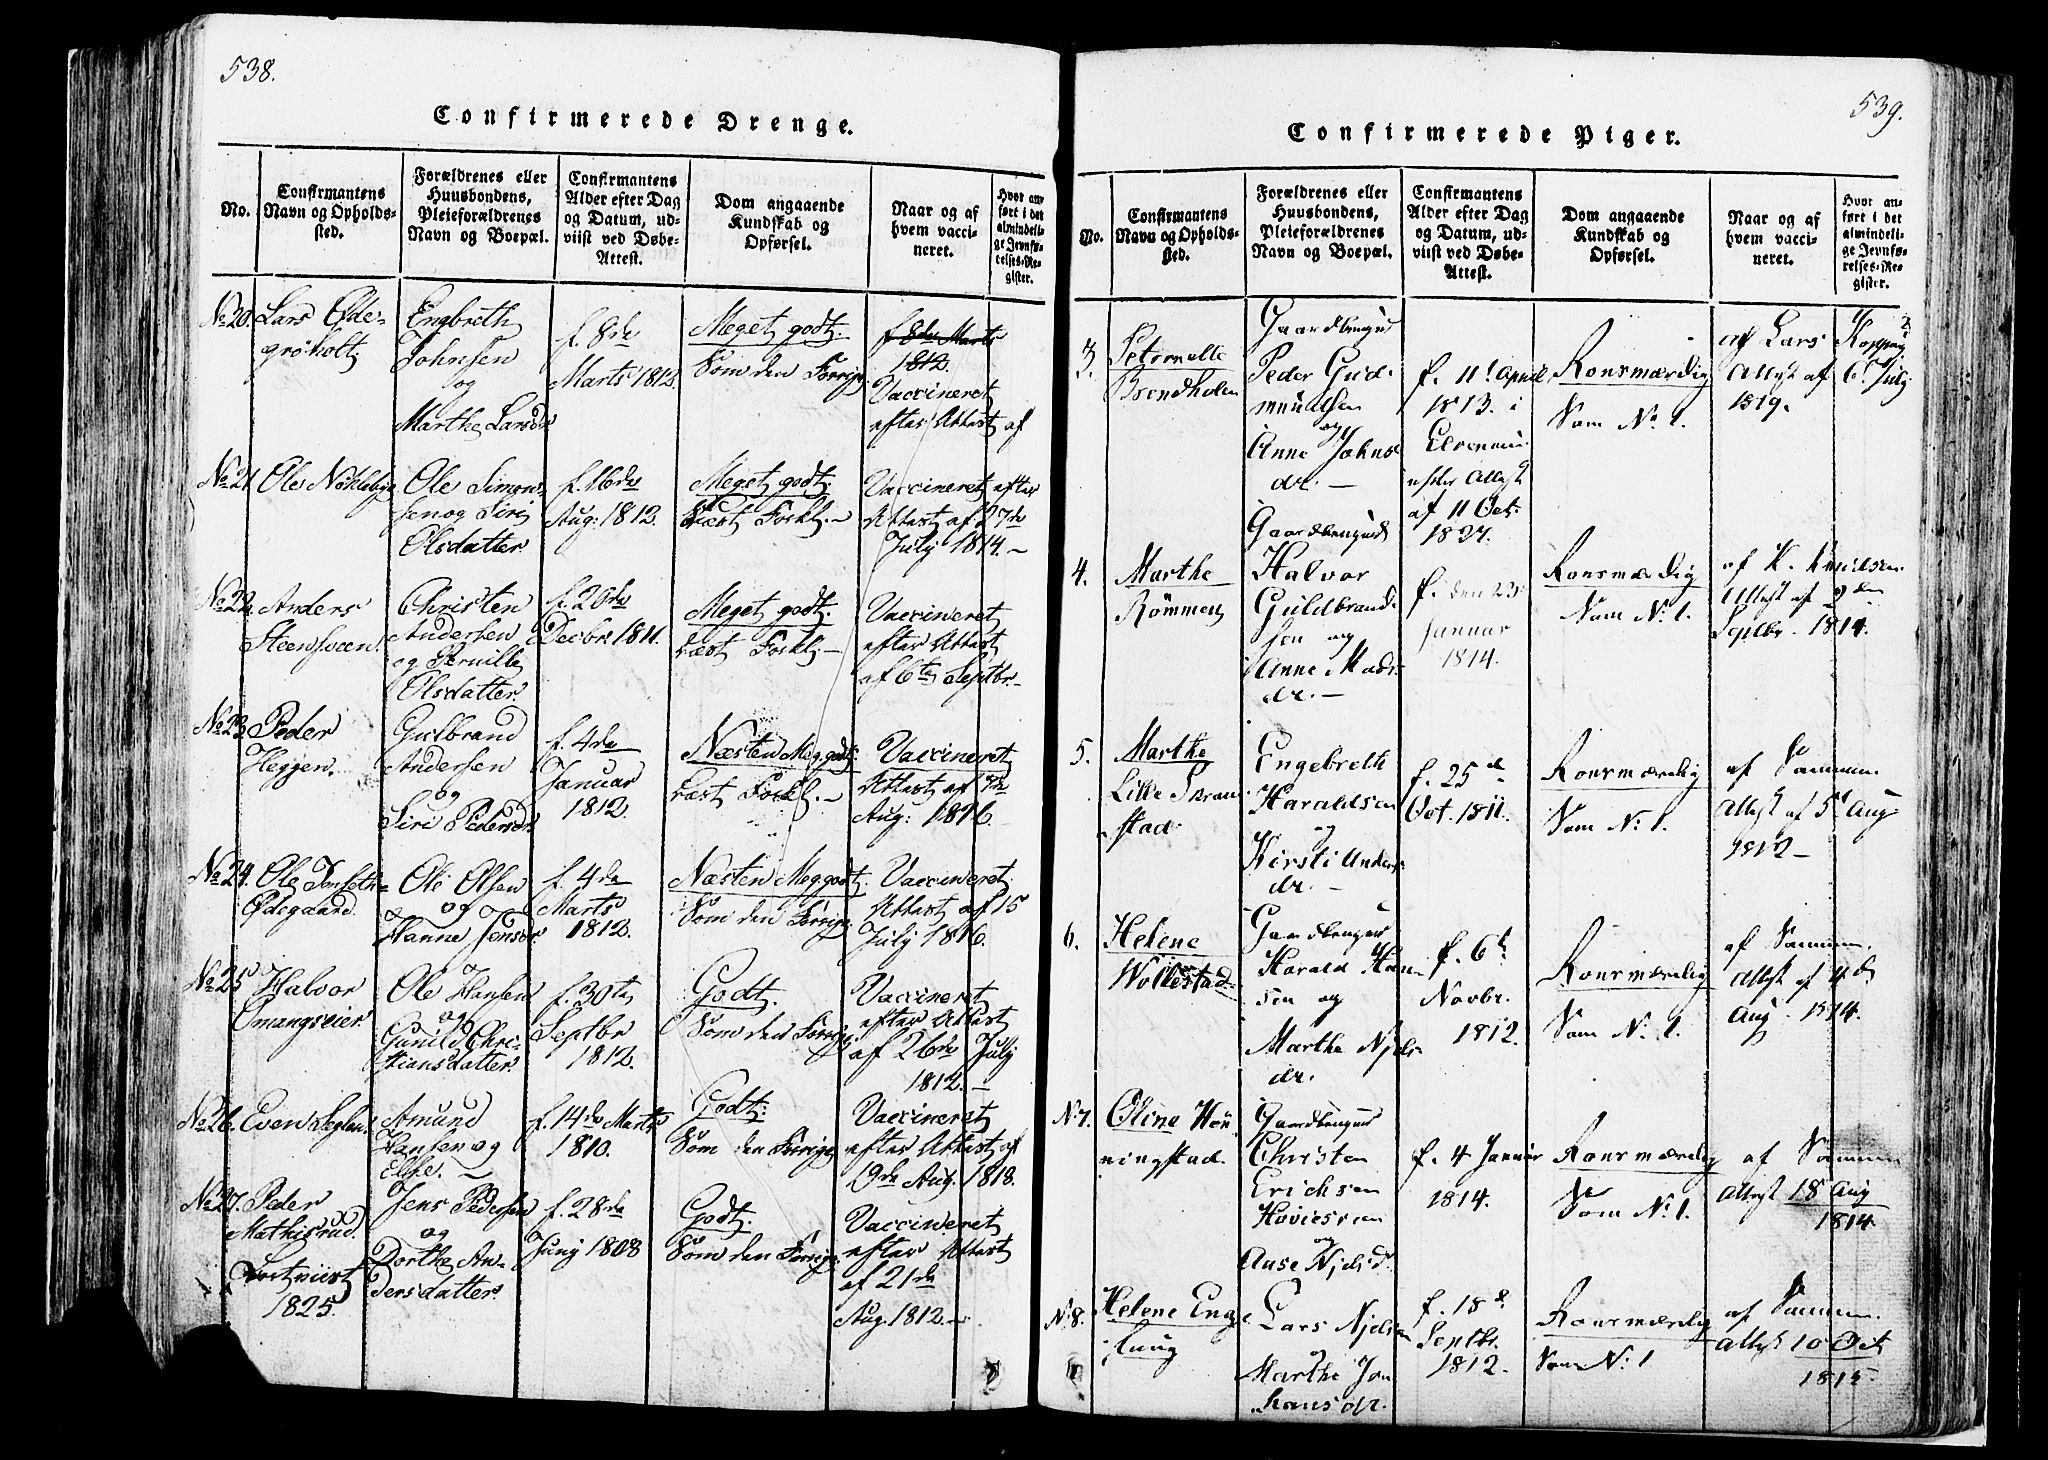 538.
Confirmerede Drenge.
No.
Confirmantens
Navn og Opholds-
sted.
Forældrenes eller
Huusbondens,
Pleieforældrenes
Navn og Boepæl.
Confirmantens
Alder efter Dag
og Datum, ud-
viist ved Døbe-
Attest.
Dom angaaende
Kundskab og
Opførsel.
Naar og af
hvem vacci-
neret.
Hvor an-
ført i det
almindeli-
ge Jevnfø-
relses-Re-
gister.
No 20.
Lars Ødegröholt.
Engbreth
Johnsen
og
Marthe Larsdr
f. 8de
Marts 1812.
Meget godt.
Som den Forrige
f 8de Marts
1812.
Vaccineret
efter Attest af
No 21
Ole Nökleby
Ole Simon-
sen og Siri
Olsdatter
f. 16de
Aug: 1812.
Meget godt.
Læst Forkl. –
Vaccineret efter
Attest af 27de
July 1814. –
No 22.
Anders
Steensveen.
Christen
Andersen
og Pernille
Olsdatter
f. 20de
Decbr 1811.
Meget godt
Læst Forkl. –
Vaccineret
efter Attest
af 6te Septbr. –
No 23
Peder
Heggen.
Gulbrand
Andersen
og
Siri Pedersdr
f. 4de
Januar
1812.
Næsten Meg. godt.
Læst Forkl. –
Vaccineret
Attest af
Aug: 1816.
No 24.
Ole
Ødegaard.
Ole Olsen
og
Hanne Jensdr
f. 4de
Marts
1812.
Næsten Meg godt.
Som den Forrige
Vaccineret
Attest af 15
July 1816.
No 25
Halvor
Omangseier.
Ole Hansen
og
Gunild Chri-
stiansdatter.
f. 30te
Septbr
1812.
Godt.
Som den Forrige
Vaccineret
efter Attest
af 26de July
1812. –
No 26.
Even
Amund
Hansen og
Else. –
f. 14de Marts
1810.
Godt.
Som den Forrige
Vaccineret
efter Attest af
19de Aug. 1818.
No 27.
Peder
Mathisrud.
Bortviist
1825.
Jens Pedersen
og
Dorthe An-
dersdatter.
f. 28de
Juny 1808
Godt.
Som den Forrige
Vaccineret
efter Attest
af 21de
Aug. 1812. –
539.
Confirmerede Piger.
No.
Confirmantens
Navn og Opholds-
sted.
Forældrenes eller
Huusbondens,
Pleieforældrenes
Navn og Boepæl.
Confirmantens
Alder efter Dag
og Datum, ud-
viist ved Døbe-
Attest.
Dom angaaende
Kundskab og
Opførsel.
Naar og af
hvem vacci-
neret.
Hvor an-
ført i det
almindeli-
ge Jevnfø-
relses-Re-
gister.
3.
Petronelle
Brendholen
Gaardbruger
Peder Gud-
mundsen
og
Anne Johns
dr. –
f. 11t April
1813. i
Elverum
efter Attest
af 11 Oct.
1827.
Roesværdig
Som No 1.
af Lars Koppang
Attest af 6t July
1819.
4.
Marthe
Römmen
Gaardbruger
Halvor
Guldbrand-
sen og
Anne Mads-
dr. –
f. den 23.
Januar
1814.
Roesværdig
Som No 1.
af K. Knudsen
Attest af 9 den
Septbr. 1814.
5.
Marthe
Lille
stad.
Engebreth
Haraldsen
og
Kirsti Anders-
dr. –
f. 25d
Oct. 1811.
Roesværdig
Som No 1.
af Samme
Attest af 5t Aug
1812 –
6.
Helene
Wollestad
Gaardbruger
Harald Han-
sen og
Marthe Njels-
dr.
f. 6t
Novbr.
1812.
Roesværdig
Som No 1.
af Samme.
Attest af 4d
Aug. 1814.
No 7.
Oline Hön-
ningstad.
Gaardbruger
Christen
Erichsen
og
Anse Njelsd.
f. 4 Januar
1814.
Roesværdig
Som No 1.
af Samme
Attest 18 Aug
1814.
No 8.
Helene Enge
Lars Njelsen
og
Marthe Jo-
hansdr.
f. 18d
Septbr.
1812.
Roesværdig
Som No 1
af Samme
Attest 10 Oct